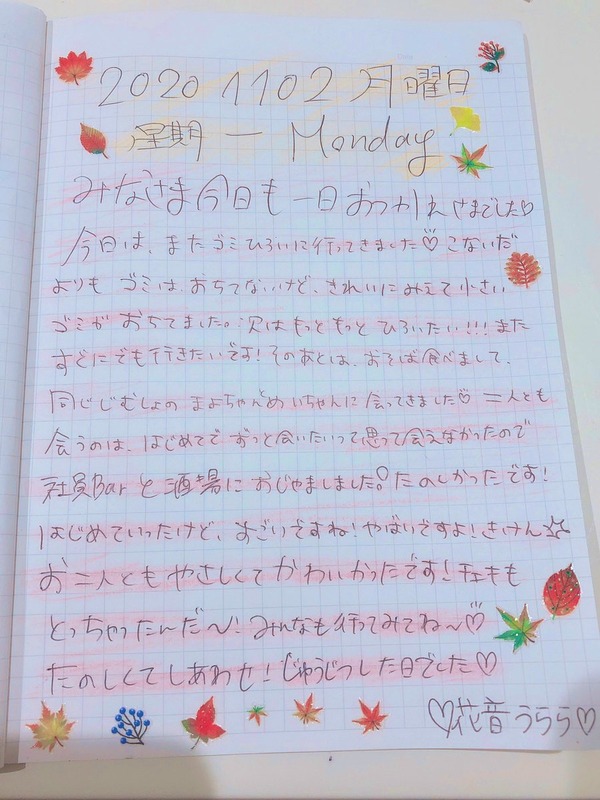 2020 1102 月曜日
星期一 Monday
みなさま今日も一日おつかれさまでした♡
今日は、またゴミひろいに行ってきました♡こないだ
よりも ゴミは おちてないけど、きれいにみえて小さい
ゴミが おちてました。次はもっともっと ひろいたい!!!また
すぐにでも行きたいです!そのあとは、おそば食べまして、
同じじむしょの まよちゃんとめいちゃんに会ってきました♡二人とも
会うのは、はじめてで ずっと会いたいって思って会えなかったので
社員Barと酒場に おじゃましました。たのしかったです!
はじめていったけど、すごいですね!やばいですよ!きけん☆
お二人ともやさしくてかわいかったです!チェキも
とっちゃったんだ〜!みんなも行ってみてね〜♡
たのしくてしあわせ!じゅうじつした日でした♡
♡花音うらら♡